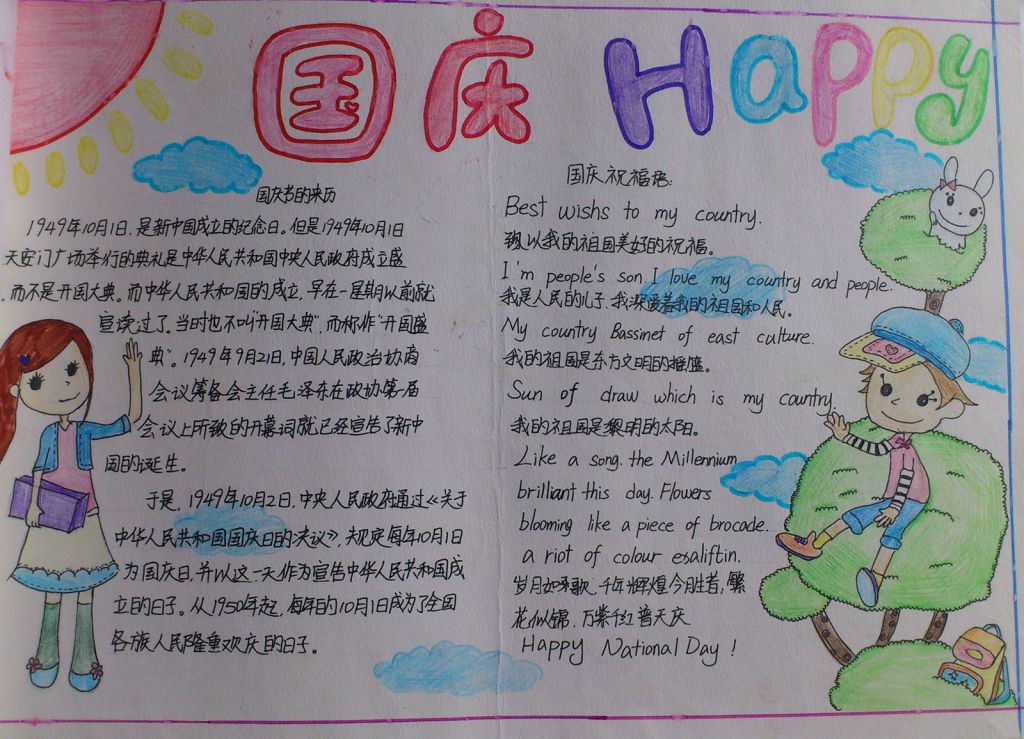 国庆 Happy
国庆节的来历
1949年10月1日,是新中国成立的纪念日。但是1949年10月1日
天安门广场举行的典礼是中华人民共和国中央人民政府成立盛
,而不是开国大典。而中华人民共和国的成立,早在一星期以前就
宣读过了,当时也不叫"开国大典",而称作"开国盛
典"。1949年9月21日,中国人民政治协商
会议筹备会主任毛泽东在政协第一届
会议上所致的开幕词就已经宣告了新中
国的诞生。
于是,1949年10月2日,中央人民政府通过《关于
中华人民共和国国庆日的决议》,规定每年10月1日
为国庆日,并以这一天作为宣告中华人民共和国成
立的日子。从1950年起,每年的10月1日成为了全国
各族人民隆重欢庆的日子。
国庆祝福语:
Best wishs to my country.
致以我的祖国美好的祝福。
I'm people's son, I love my country and people.
我是人民的儿子,我深爱着我的祖国和人民。
My country Bassinet of east culture.
我的祖国是东方文明的摇篮。
Sun of draw which is my country.
我的祖国是黎明的太阳。
Like a song. the Millennium
brilliant this day. Flowers
blooming like a piece of brocade.
a riot of colour esaliftin.
岁月如歌,千年辉煌今胜昔,繁
花似锦,万紫千红普天庆
Happy National Day !